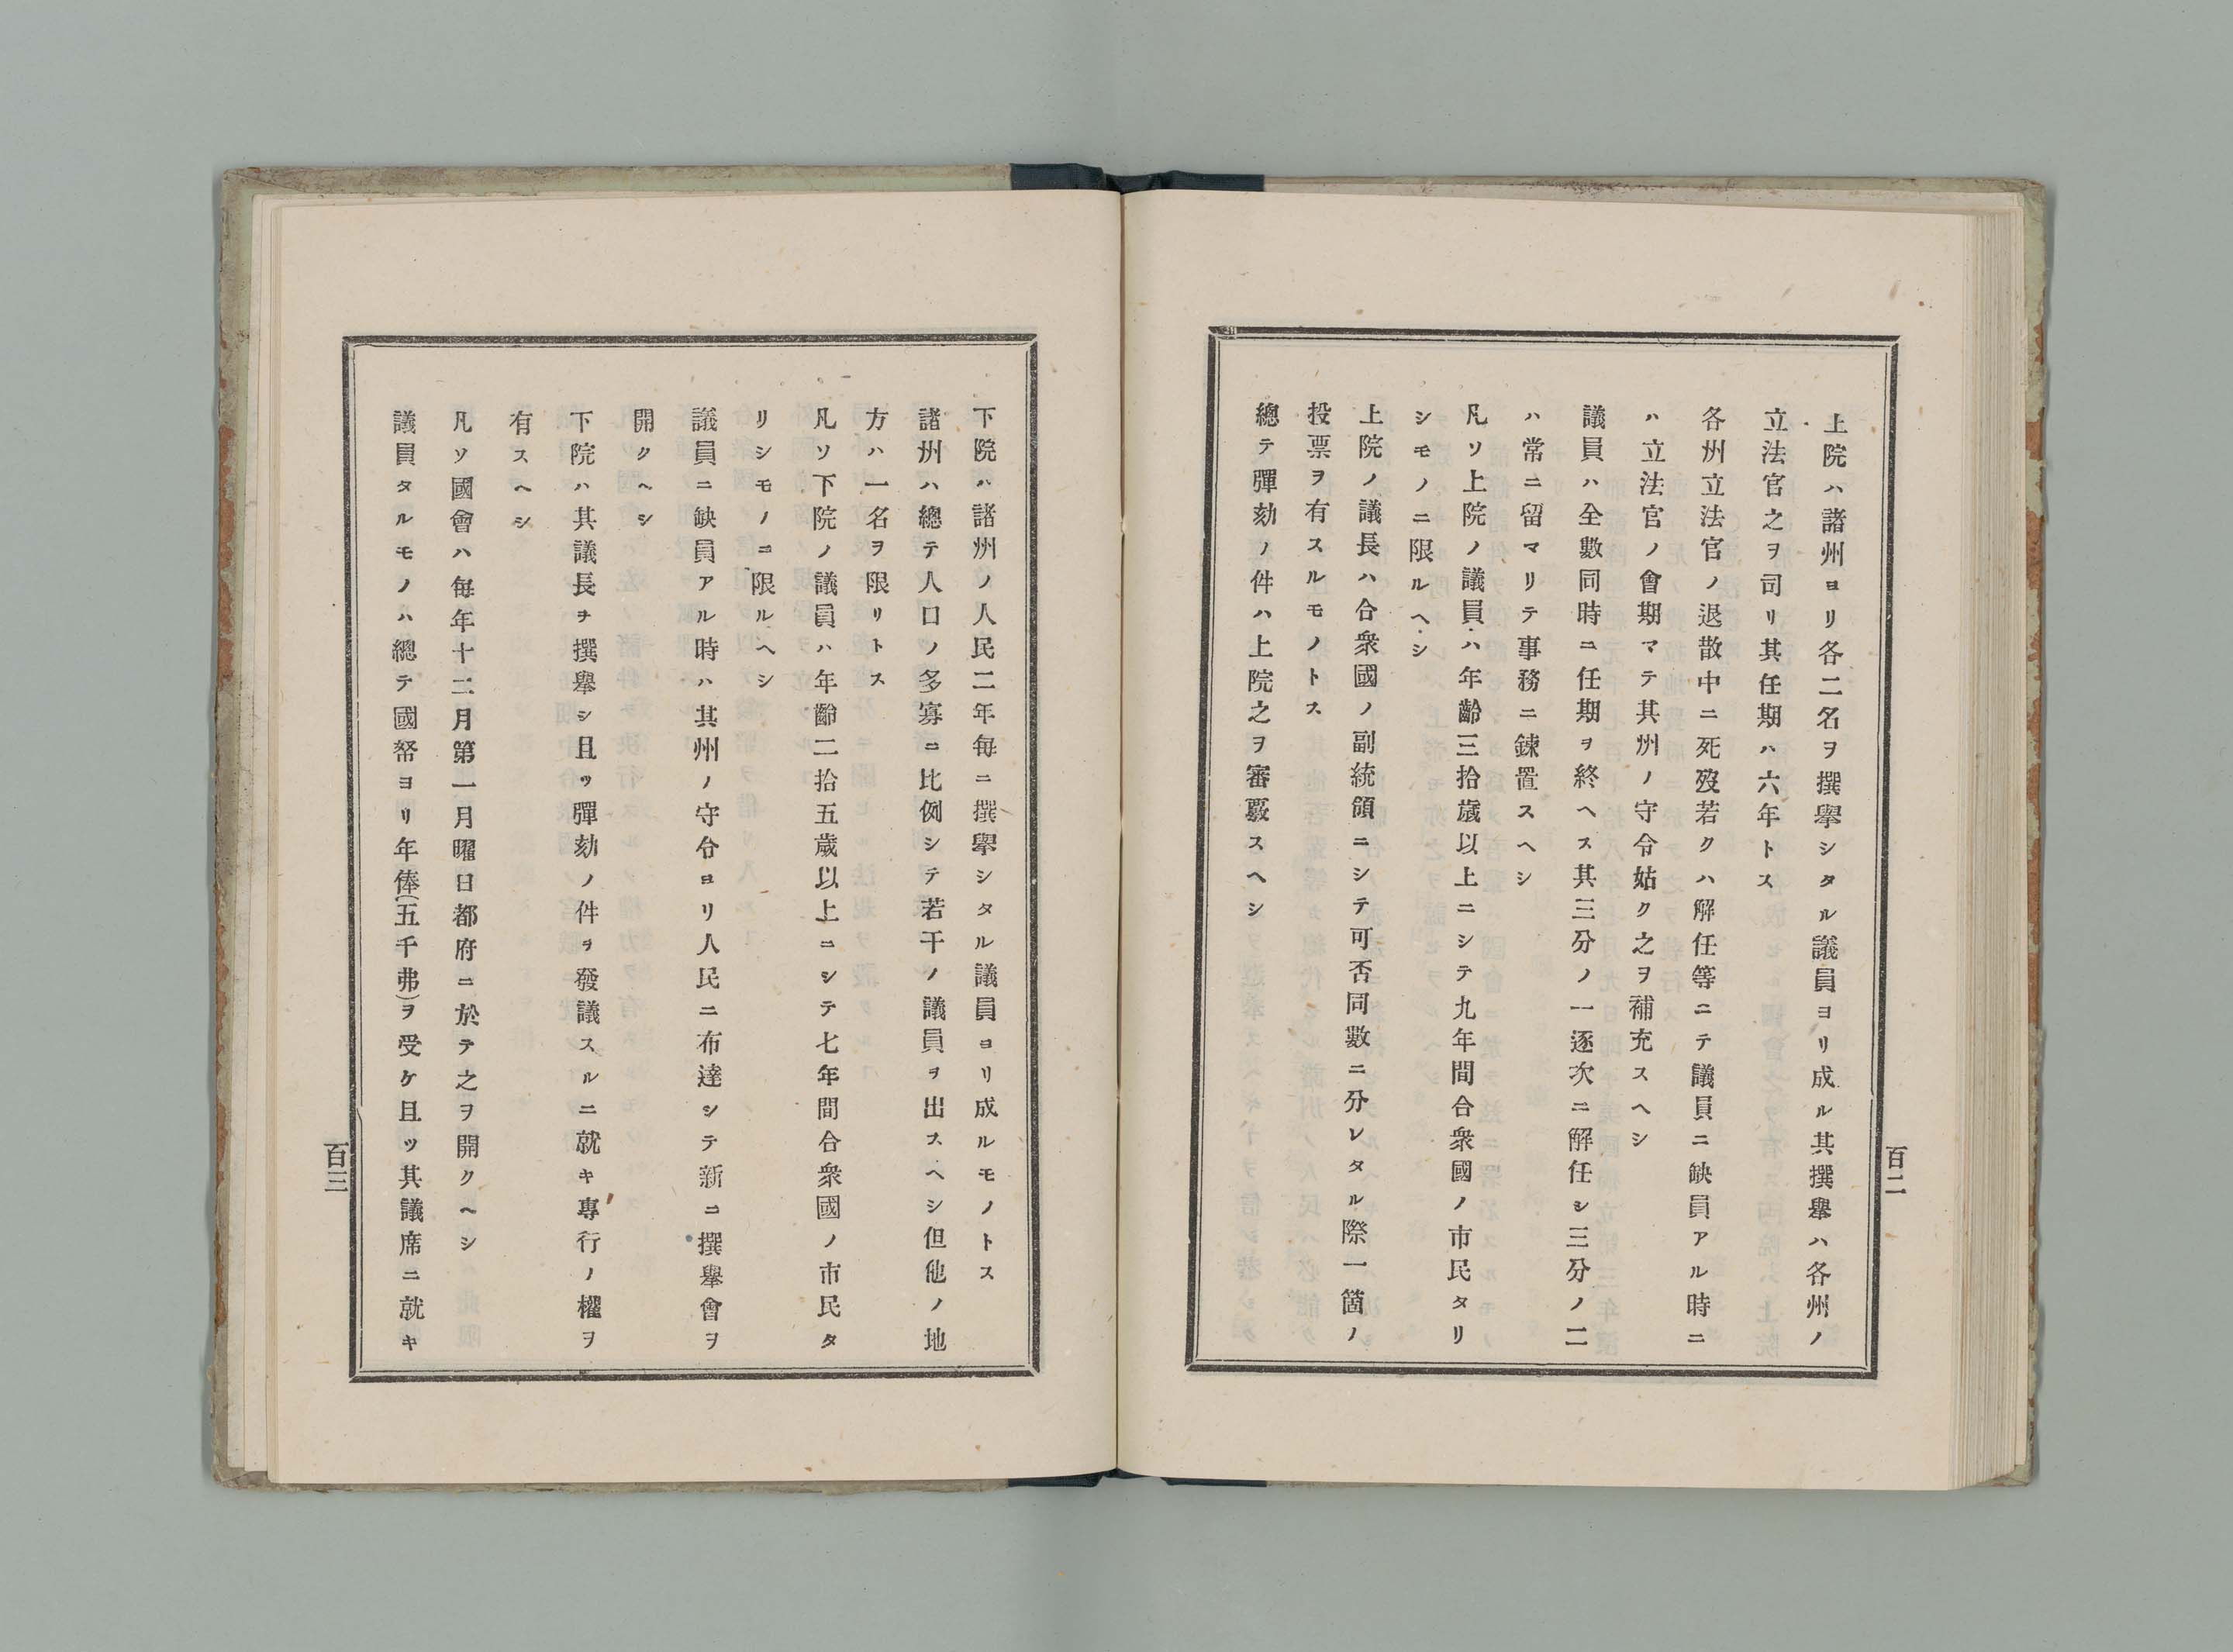 百二
上院ハ諸州ヨリ各二名ヲ撰擧シタル議員ヨリ成ル其撰擧ハ各州ノ
立法官之ヲ司リ其任期ハ六年トス
各州立法官ノ退散中ニ死歿若クハ解任等ニテ議員ニ缺員アル時ニ
ハ立法官ノ會期マテ其州ノ守令姑ク之ヲ補充スヘシ
議員ハ全數同時ニ任期ヲ終ヘス其三分ノ一逐次ニ解任シ三分ノ二
ハ常ニ留マリテ事務ニ鍊置スヘシ
凡ソ上院ノ議員ハ年齡三拾歲以上ニシテ九年間合衆國ノ市民タリ
シモノニ限ルヘシ
上院ノ議長ハ合衆國ノ副統領ニシテ可否同數ニ分レタル際一箇ノ
投票ヲ有スルモノトス
總テ彈劾ノ件ハ上院之ヲ審覈スヘシ
下院ハ諸州ノ人民二年每ニ撰擧シタル議員ヨリ成ルモノトス
諸州ハ總テ人口ノ多寡ニ比例シテ若干ノ議員ヲ出スヘシ但他ノ地
方ハ一名ヲ限リトス
凡ソ下院ノ議員ハ年齡二拾五歲以上ニシテ七年間合衆國ノ市民タ
リシモノニ限ルヘシ
議員ニ缺員アル時ハ其州ノ守令ヨリ人民ニ布達シテ新ニ撰擧會ヲ
開クヘシ
下院ハ其議長ヲ撰擧シ且ツ彈劾ノ件ヲ發議スルニ就キ專行ノ權ヲ
有スヘシ
凡ソ國會ハ每年十二月第一月曜日都府ニ於テ之ヲ開クヘシ
議員タルモノハ總テ國帑ヨリ年俸(五千弗)ヲ受ケ且ツ其議席ニ就キ
百三